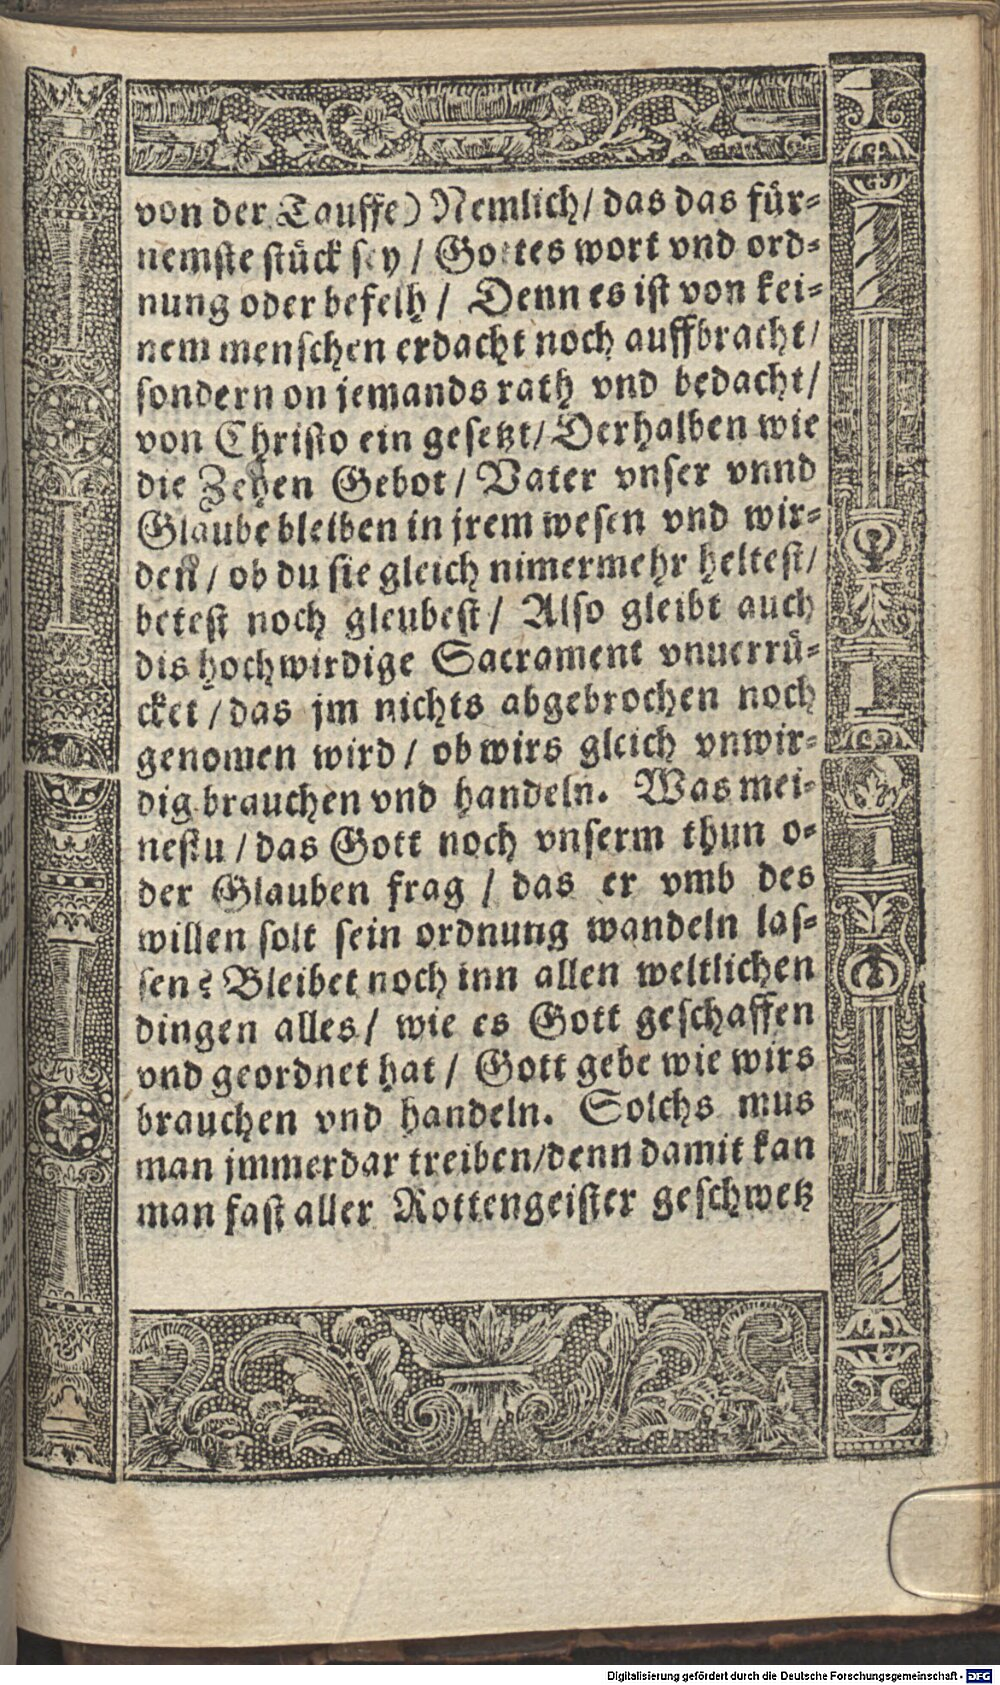 von der Tauffe) Nemlich/ das das für-
nemste stück sey / Gottes wort vnd ord-
nung oder befelh / Denn es ist von kei-
nem menschen erdacht noch auffbracht/
sondern on jemands rath vnd bedacht/
von Christo ein gesetzt/ Derhalben wie
die Zehen Gebot / Vater vnser vnnd
Glaube bleiben in jrem wesen vnd wir-
den / ob du sie gleich nimermehr heltest/
betest noch gleubest / Also gleibt auch
dis hochwirdige Sacrament vnuerrü-
cket / das jm nichts abgebrochen noch
genomen wird / ob wirs gleich vnwir-
dig brauchen vnd handeln. Was mei-
nestu / das Gott noch vnserm thun o-
der Glauben frag / das er vmb des
willen solt sein ordnung wandeln las-
sen? Bleibet noch inn allen weltlichen
dingen alles / wie es Gott geschaffen
vnd geordnet hat / Gott gebe wie wirs
brauchen vnd handeln. Solchs mus
man jmmerdar treiben/denn damit kan
man fast aller Rottengeister geschwetz
Digitalisierung gefördert durch die Deutsche Forschungsgemeinschaft - DFG